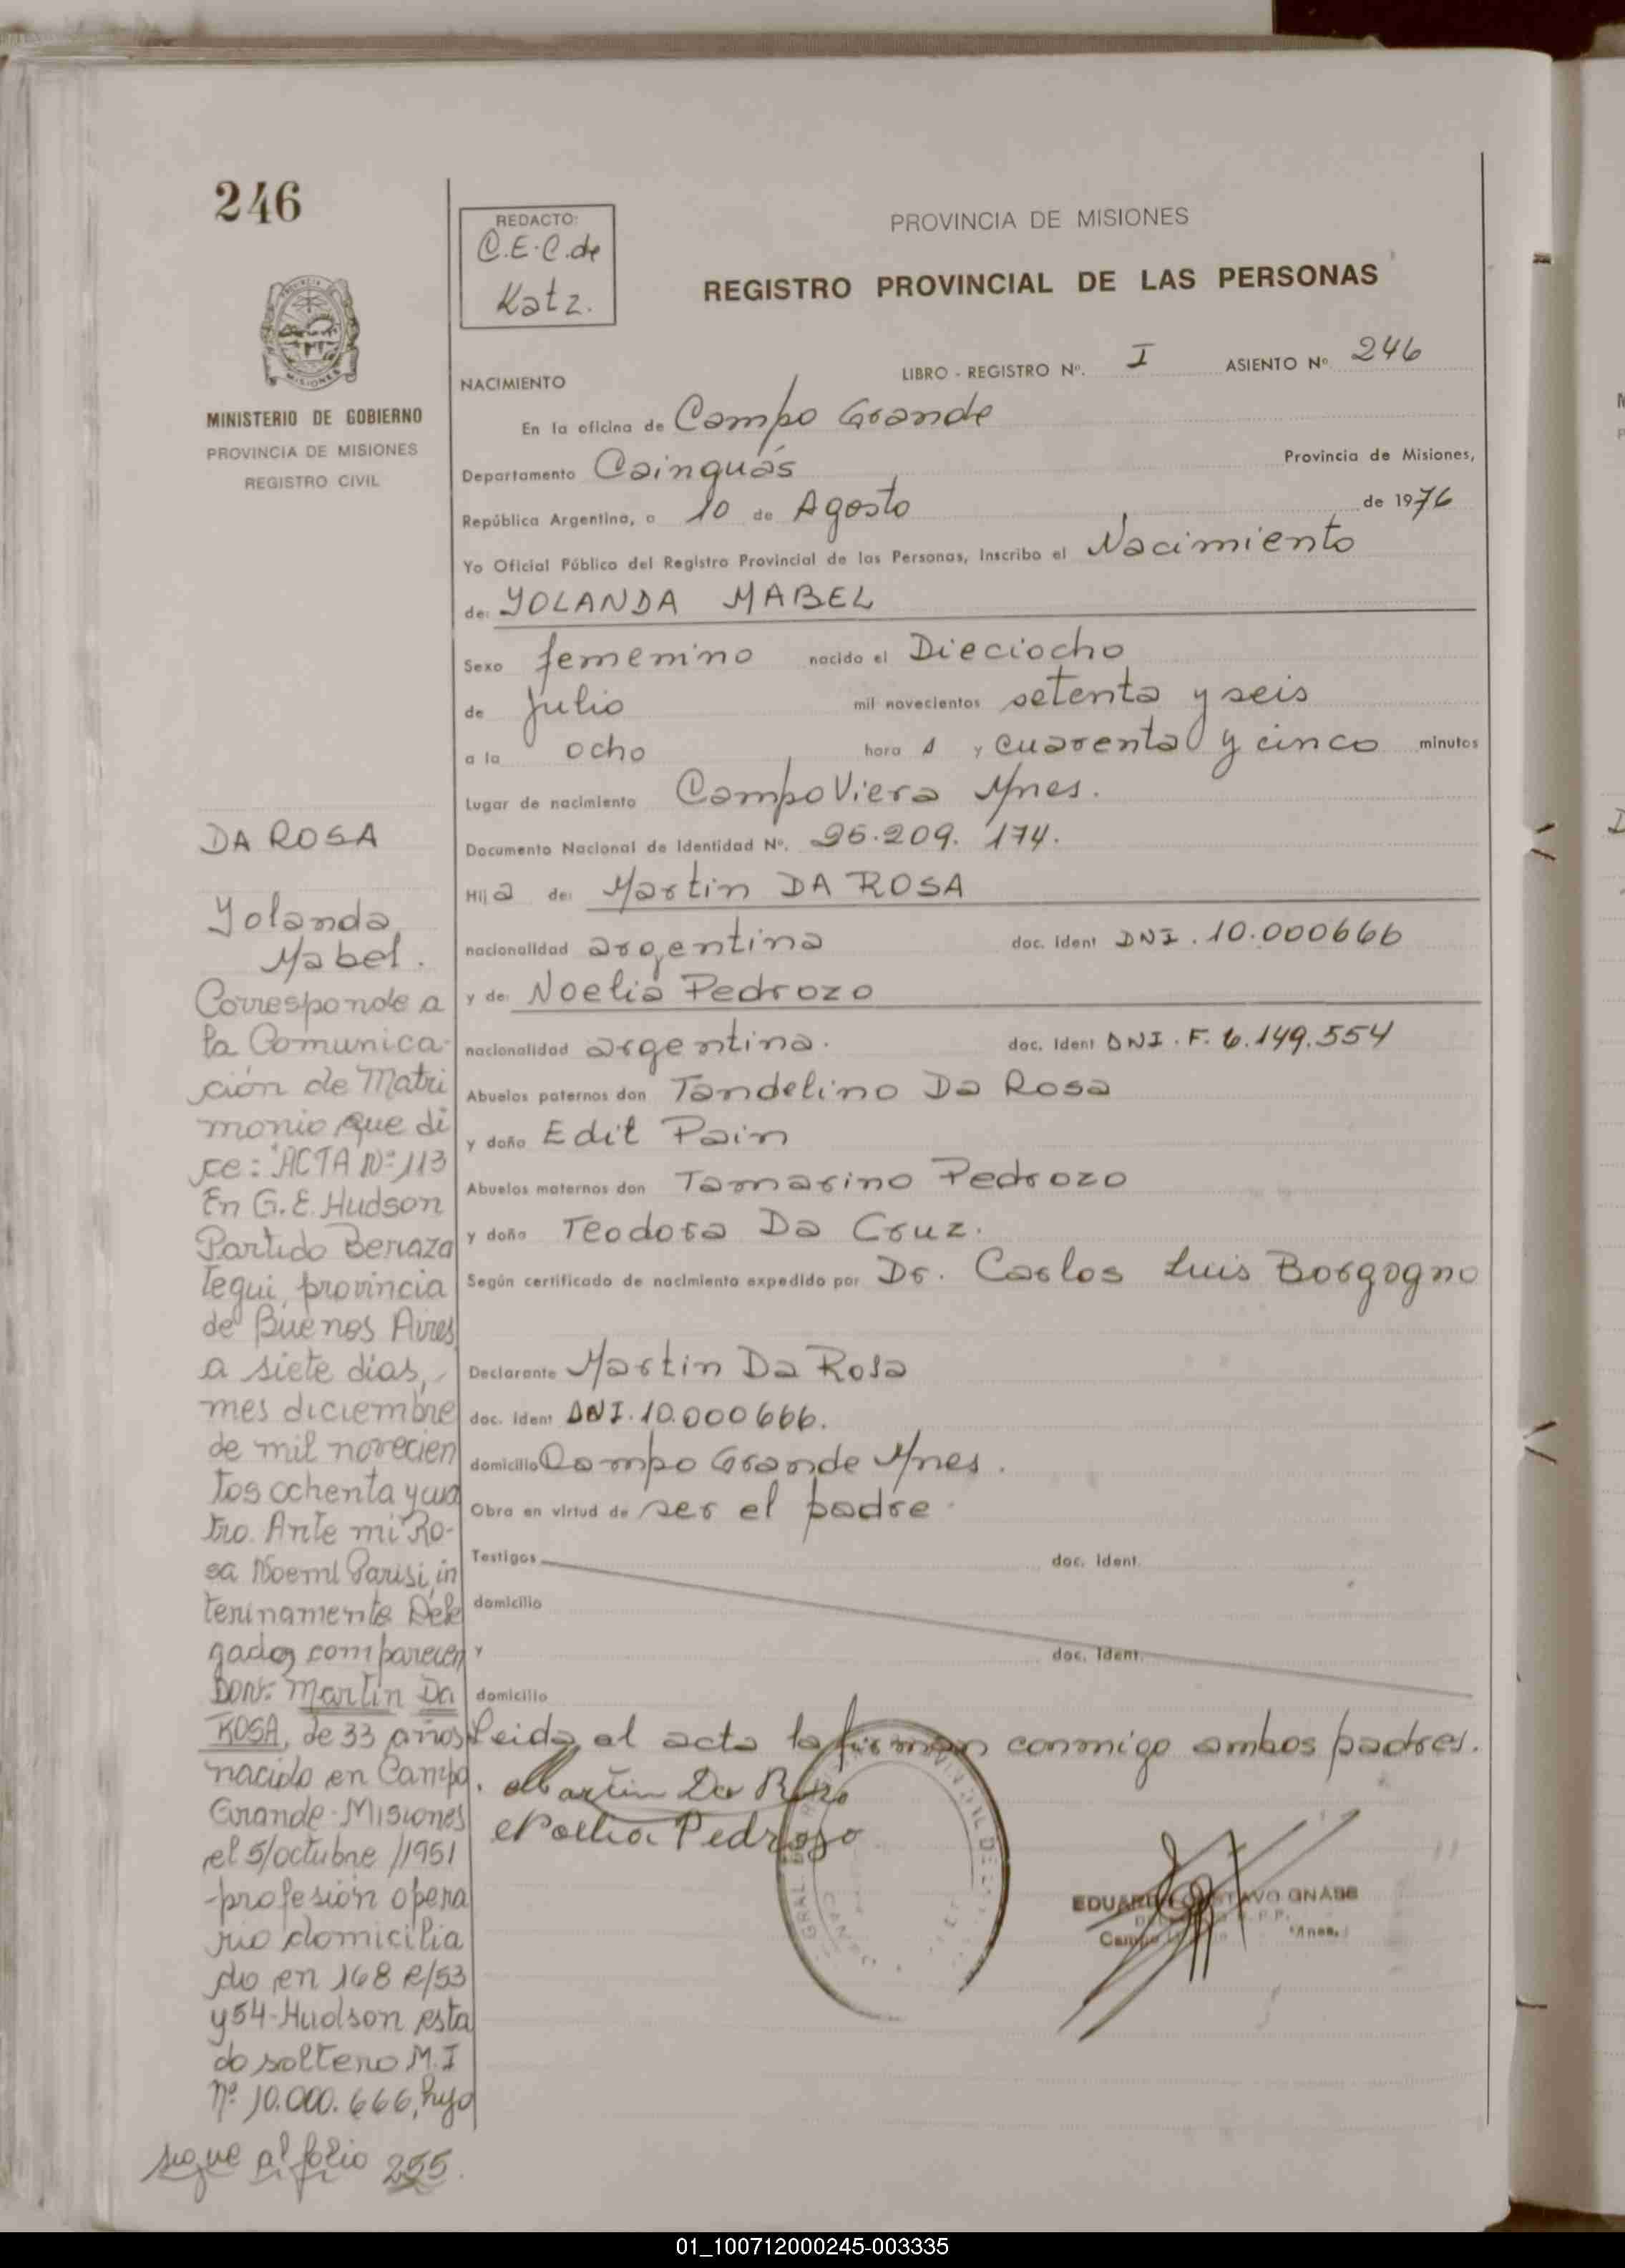 246
REDACTO:
C.E.C. de
Katz.
PROVINCIA DE MISIONES
REGISTRO PROVINCIAL DE LAS PERSONAS
LIBRO - REGISTRO Nº. I ASIENTO Nº. 246
NACIMIENTO
MINISTERIO DE GOBIERNO
PROVINCIA DE MISIONES
REGISTRO CIVIL
En la oficina de Campo Grande
Departamento Cainguás Provincia de Misiones,
República Argentina, a 10 de Agosto de 1976
Yo Oficial Público del Registro Provincial de las Personas, Inscribo el Nacimiento
de: YOLANDA MABEL
Sexo femenino nacido el Dieciocho
de Julio mil novecientos setenta y seis
a la ocho hora s y cuarenta y cinco minutos
Lugar de nacimiento Campo Viera Mnes.
Documento Nacional de Identidad Nº. 25.209.174.
Hij a de: Martin DA ROSA
nacionalidad argentina doc. Ident DNI. 10.000666
y de: Noelia Pedrozo
nacionalidad argentina. doc. Ident DNI. F. 6.149.554
Abuelos paternos don Tandelino Da Rosa
y doña Edit Pain
Abuelos maternos don Tamarino Pedrozo
y doña Teodora Da Cruz.
Según certificado de nacimiento expedido por Dr. Carlos Luis Borgogno
Declarante Martin Da Rosa
doc. Ident DNI. 10.000666.
domicilio Campo Grande Mnes.
Obra en virtud de ser el padre
Testigos doc. Ident.
domicilio
y doc. Ident.
domicilio
Leida el acta la firman conmigo ambos padres.
Martin Da Rosa
Noelia Pedrozo
DA ROSA
Yolanda
Mabel.
Corresponde a
la Comunica-
ción de Matri
monio que di
ce: "ACTA Nº 113
En G.E. Hudson
Partido Beraza
tegui, provincia
de Buenos Aires
a siete dias,
mes diciembre
de mil novecien
tos ochenta y cua
tro. Ante mi Ro-
sa Noemi Parisi, in
terinamente Dele
gada, comparecen
Don: Martin Da
ROSA, de 33 años
nacido en Campo
Grande-Misiones
el 5/octubre/1951
-profesión opera
rio domicilia
do en 168 e/53
y54-Hudson esta
do soltero M.I
Nº 10.000.666, hijo
sigue al folio 255.
01_100712000245-003335